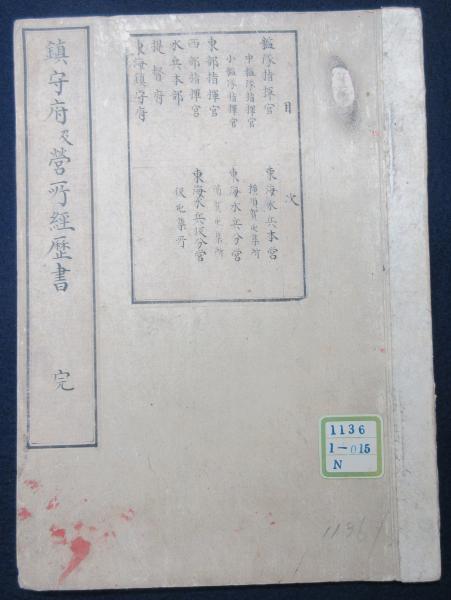 鎮守府及營所經歷書
完
目次
艦隊指揮官
中艦隊指揮官
小艦隊指揮官
東部指揮官
西部指揮官
水兵本部
提督府
東海鎮守府
東海水兵本営
横須賀屯集所
東海水兵分営
須賀屯集所
東海水兵後分営
後屯集所
1136
1-015
N
1136